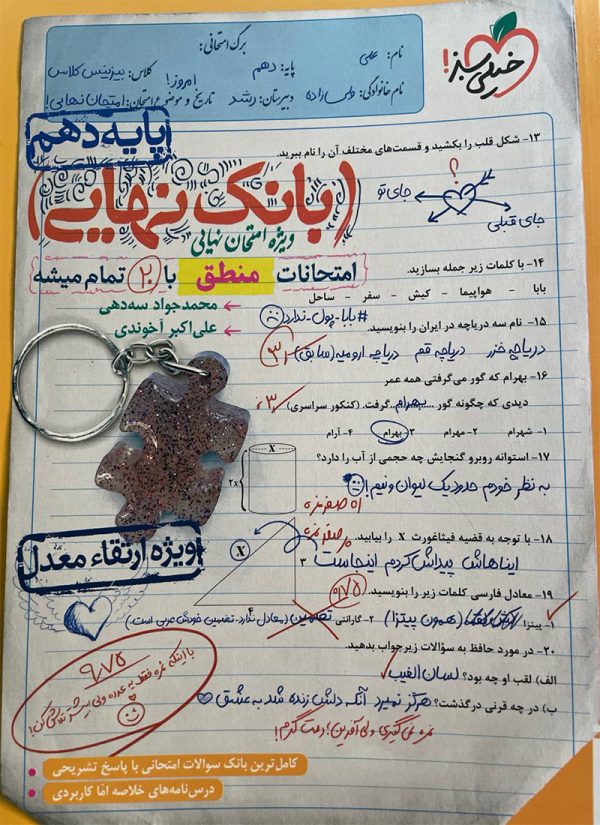 خیلی سبز!
برگ امتحانی:
نام: علی
پایه: دهم
کلاس: بیزنیس کلاس
نام خانوادگی: ولی‌زاده
دبیرستان: رشد
تاریخ و موضوع امتحان: امتحان نهایی!
امروز!
پایه دهم
۱۳- شکل قلب را بکشید و قسمت‌های مختلف آن را نام ببرید.
؟
جای تو
جای قبلی
(بانک نهایی)
ویژه امتحان نهایی
امتحانات منطق با ۲۰ تمام میشه
← محمدجواد سه‌دهی
← علی‌اکبر آخوندی
۱۴- با کلمات زیر جمله بسازید.
بابا - هواپیما - کیش - سفر - ساحل
#بابا-پول-ندارد
۱۵- نام سه دریاچه در ایران را بنویسید.
دریاچه خزر دریاچه قم دریاچه ارومیه (سابق)
۱۶- بهرام که گور می‌گرفتی همه عمر
دیدی که چگونه گور ....بهرام.... گرفت. (کنکور سراسری)
۱- شهرام ۲- مهرام ۳- بهرام ۴- آرام
۱۷- استوانه روبرو گنجایش چه حجمی از آب را دارد؟
X
2x
به نظر خودم حدود یک لیوان و نیم!
۱۸- با توجه به قضیه فیثاغورث X را بیابید.
X
۳
۴
ایناهاش پیداش کردم اینجاست
ویژه ارتقاء معدل
۱۹- معادل فارسی کلمات زیر را بنویسید.
۰/۷۵
۱- پیتزا (همون پیتزا) ۲- گارانتی تضمین (معادل ندارد. تضمین خودش عربی است)
۲۰- در مورد حافظ به سؤالات زیر جواب بدهید.
الف) لقب او چه بود؟ لسان الغیب
ب) در چه قرنی درگذشت؟ هرگز نمیرد آنکه دلش زنده شد به عشق
نمره نمی‌گیری ولی آفرین! دمت گرم!
۹/۷۵
کامل‌ترین بانک سوالات امتحانی با پاسخ تشریحی
درس‌نامه‌های خلاصه امّا کاربردی